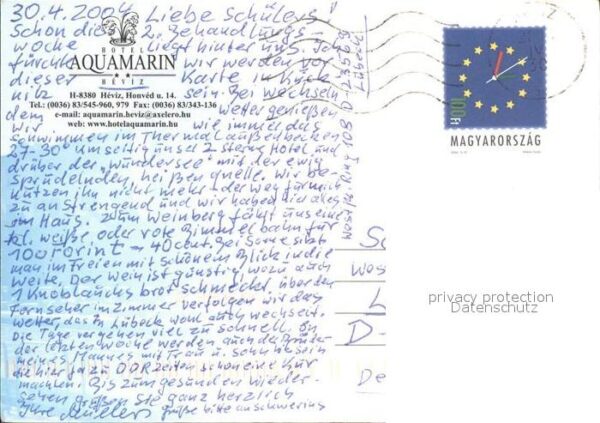 30.4.2004 Liebe Schülers!
Schon die 2. Behandlungs
woche liegt hinter uns. Ich
fürchte wir werden vor
dieser Karte in Kück
nitz sein. Bei wechseln
dem Wetter genießen
wir wie immer das
HOTEL
AQUAMARIN
HÉVÍZ
H-8380 Hévíz, Honvéd u. 14.
Tel.: (0036) 83/545-960, 979 Fax: (0036) 83/343-136
e-mail: aquamarin.heviz@axelero.hu
web: www.hotelaquamarin.hu
Schwimmen im Thermalaußenbecken
37-30° umseitig unser 2 Sterne Hotel und
drüber der "Wundersee" mit der ewig
sprudelnden, heißen Quelle. Wir be-
nutzen ihn nicht mehr, der Weg für mich
zu anstrengend und wir haben hier alles
im Haus. Zum Weinberg fährt uns eine
tgl. weiße oder rote Bimmelbahn für
100 Forint → 40 Cent. Bei Sonne sitzt
man im Freien mit schönem Blick in die
Weite. Der Wein ist günstig, wozu auch
1 Knoblauchsbrot schmeckt. Über den
Fernseher im Zimmer verfolgen wir das
Wetter, das in Lübeck wohl auch wechselt.
Die Tage vergehen viel zu schnell. In
der letzten Woche werden auch der Bruder
meines Mannes mit Frau u. Sohn hier sein
die hier ja zu DDR Zeiten schon eine Kur
machten. Bis zum gesunden Wieder-
sehen grüßen Sie ganz herzlich
Ihre Grüße bitte an
108 D-23569
Lübeck
100Ft
MAGYARORSZÁG
L
D-
privacy protection
Datenschutz